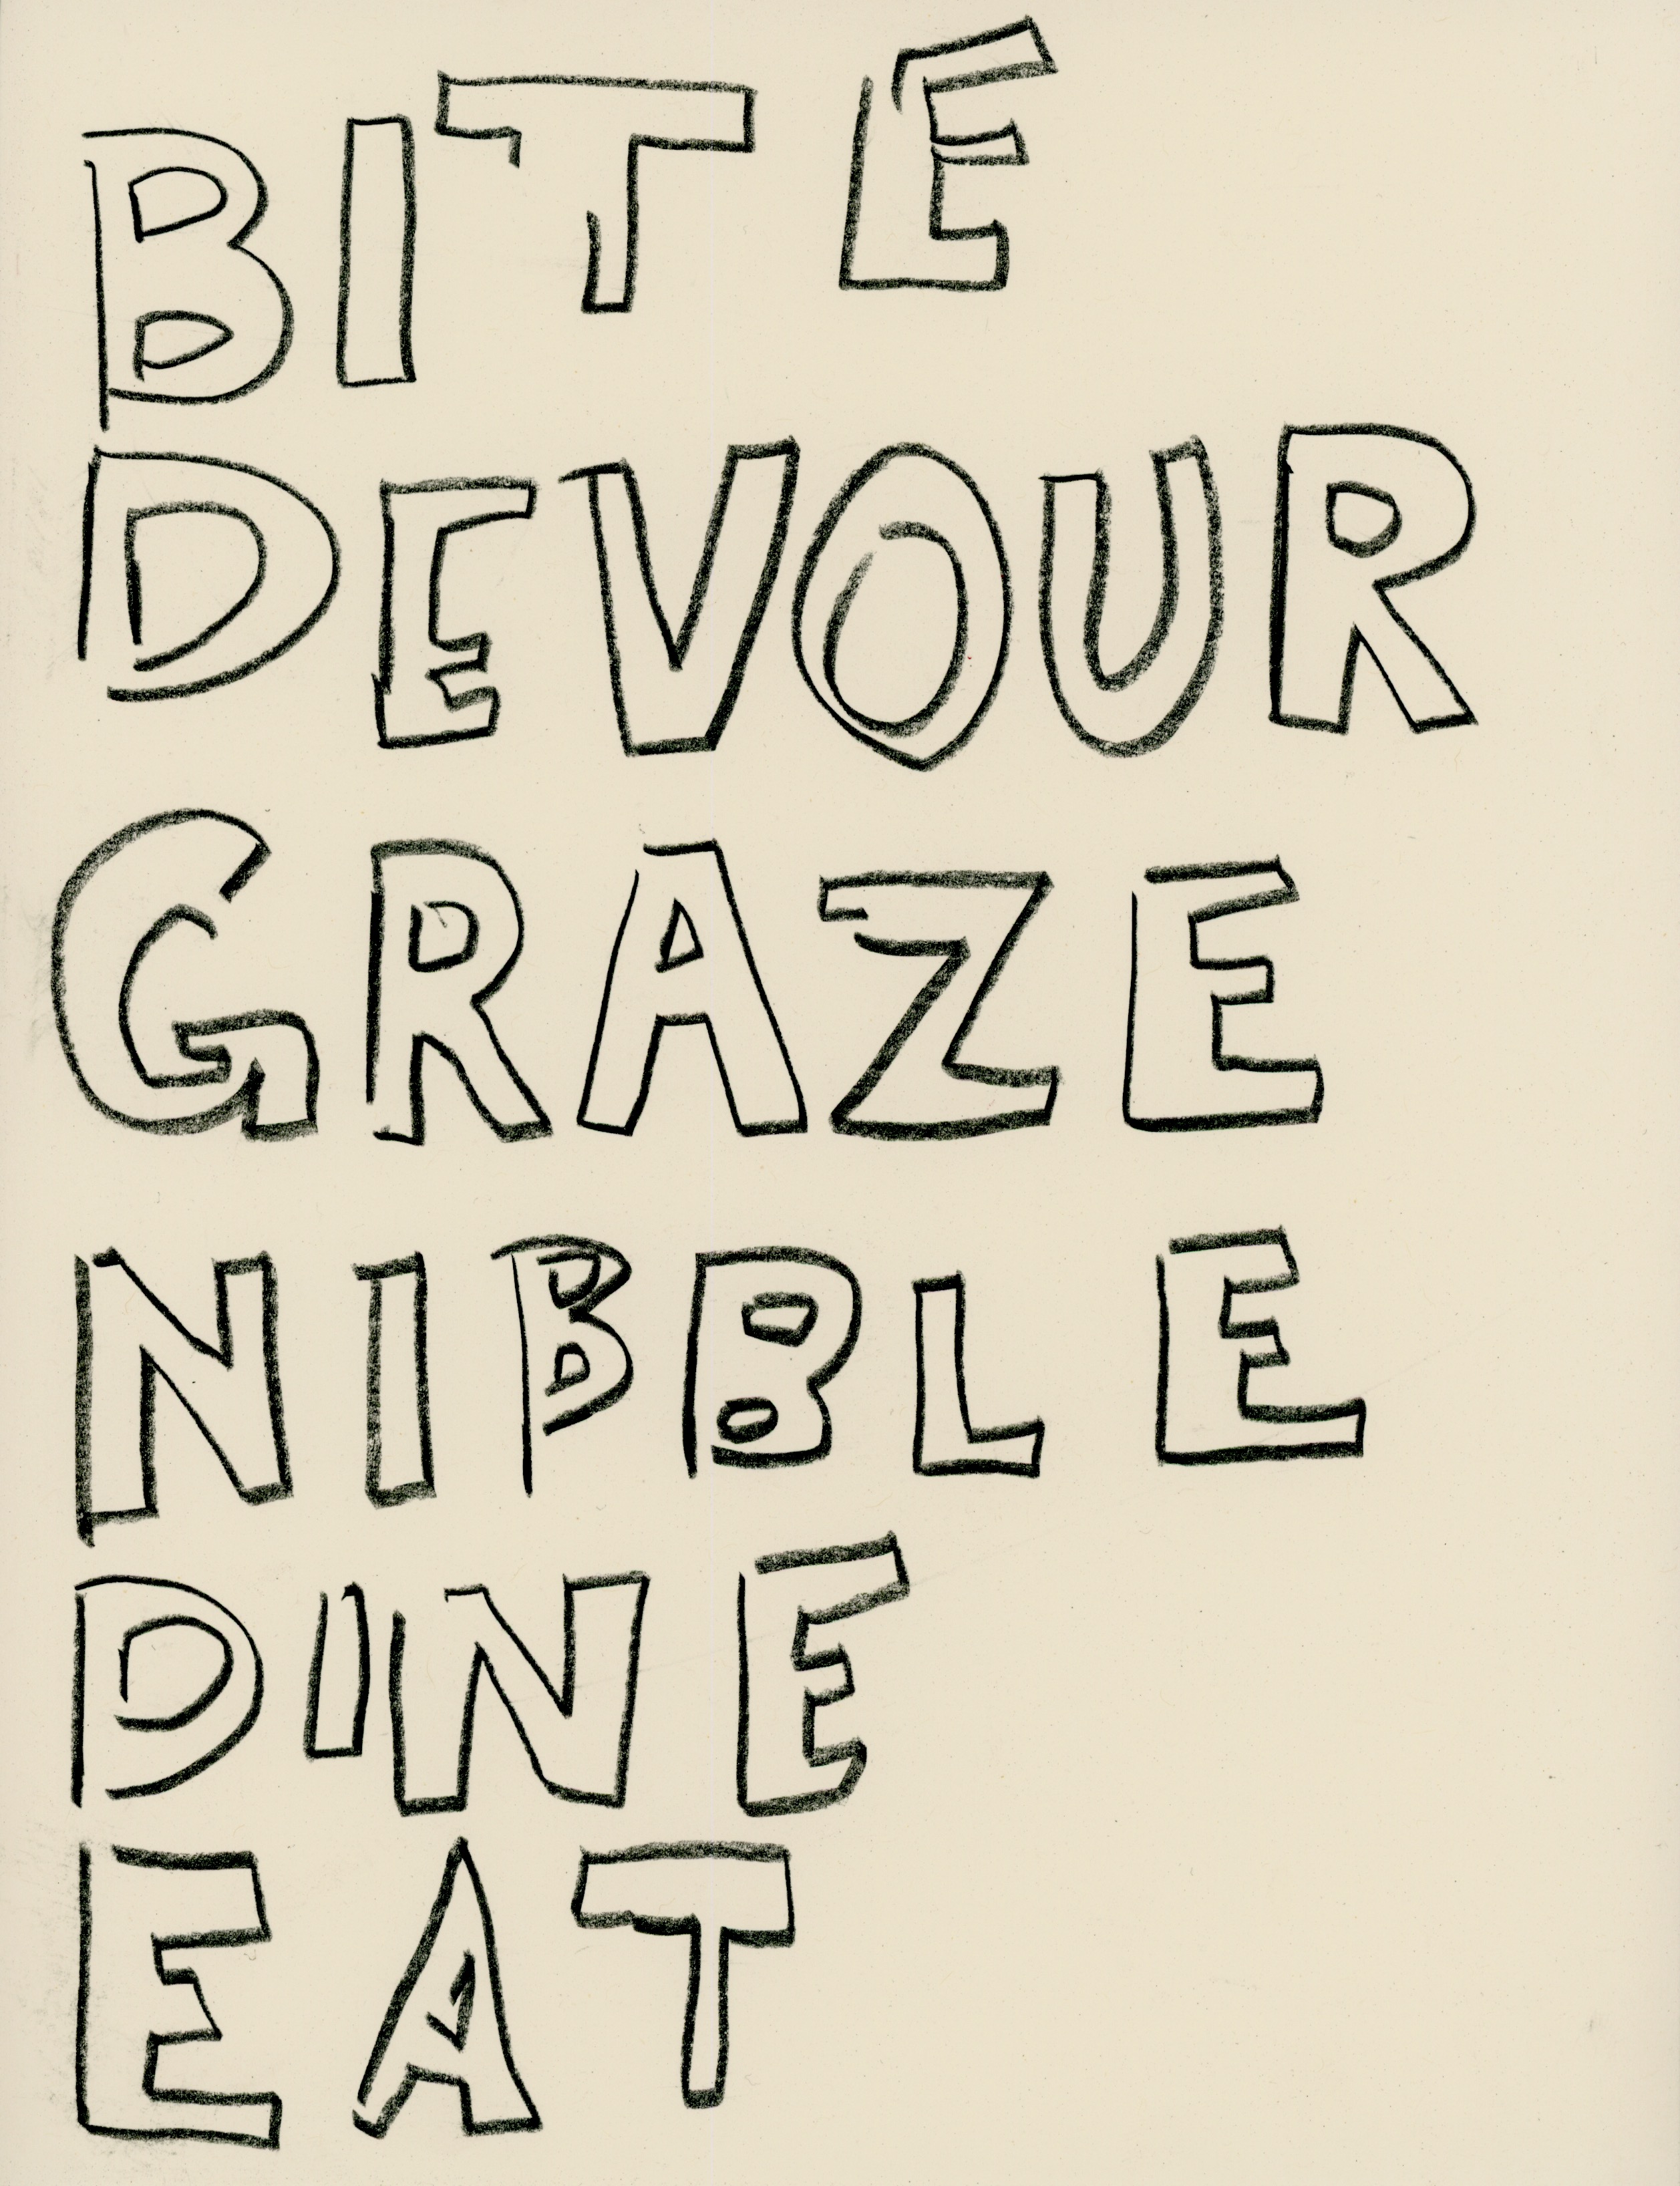 BITE
DEVOUR
GRAZE
NIBBLE
DINE
EAT